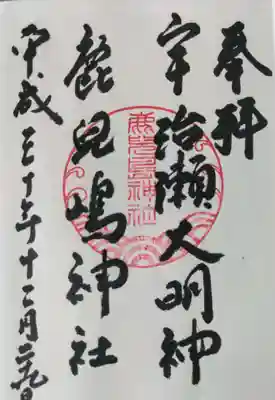 奉拝
宇治瀬大明神
鹿兒嶋神社
平成三十年十二月二九日
鹿兒島神社